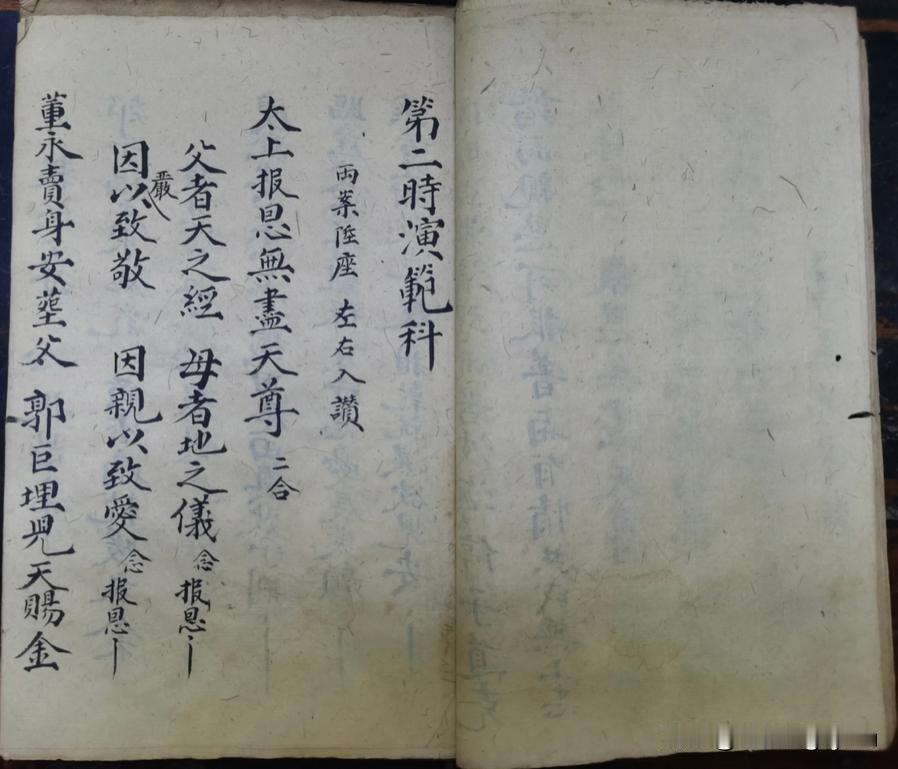 第二時演範科
両案陞座 左右入讃
太上报恩無盡天尊 二合
父者天之經 母者地之儀 念报恩
因嚴以致敬 因親以致愛 念报恩
董永賣身安塟父 郭巨埋児天賜金